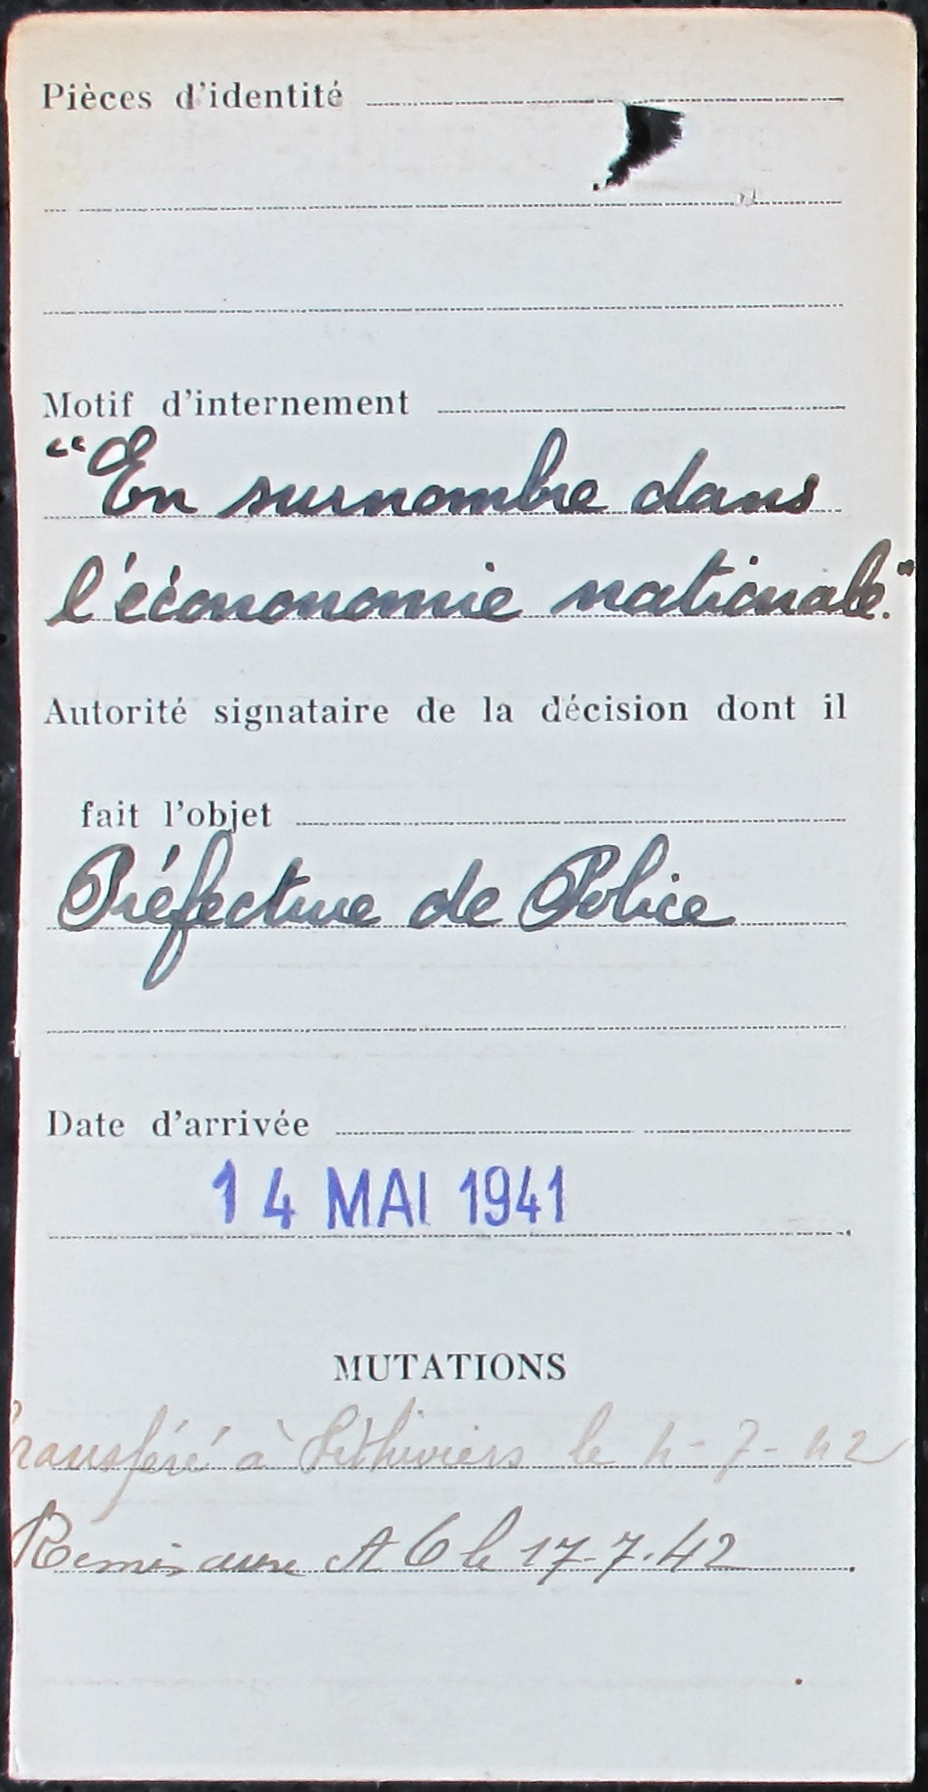 Pièces d'identité
Motif d'internement
"En surnombre dans
l'économie nationale".
Autorité signataire de la décision dont il
fait l'objet
Préfecture de Police
Date d'arrivée
14 MAI 1941
MUTATIONS
Transféré à Pithiviers le 4-7-42
Remis aux A O le 17-7-42